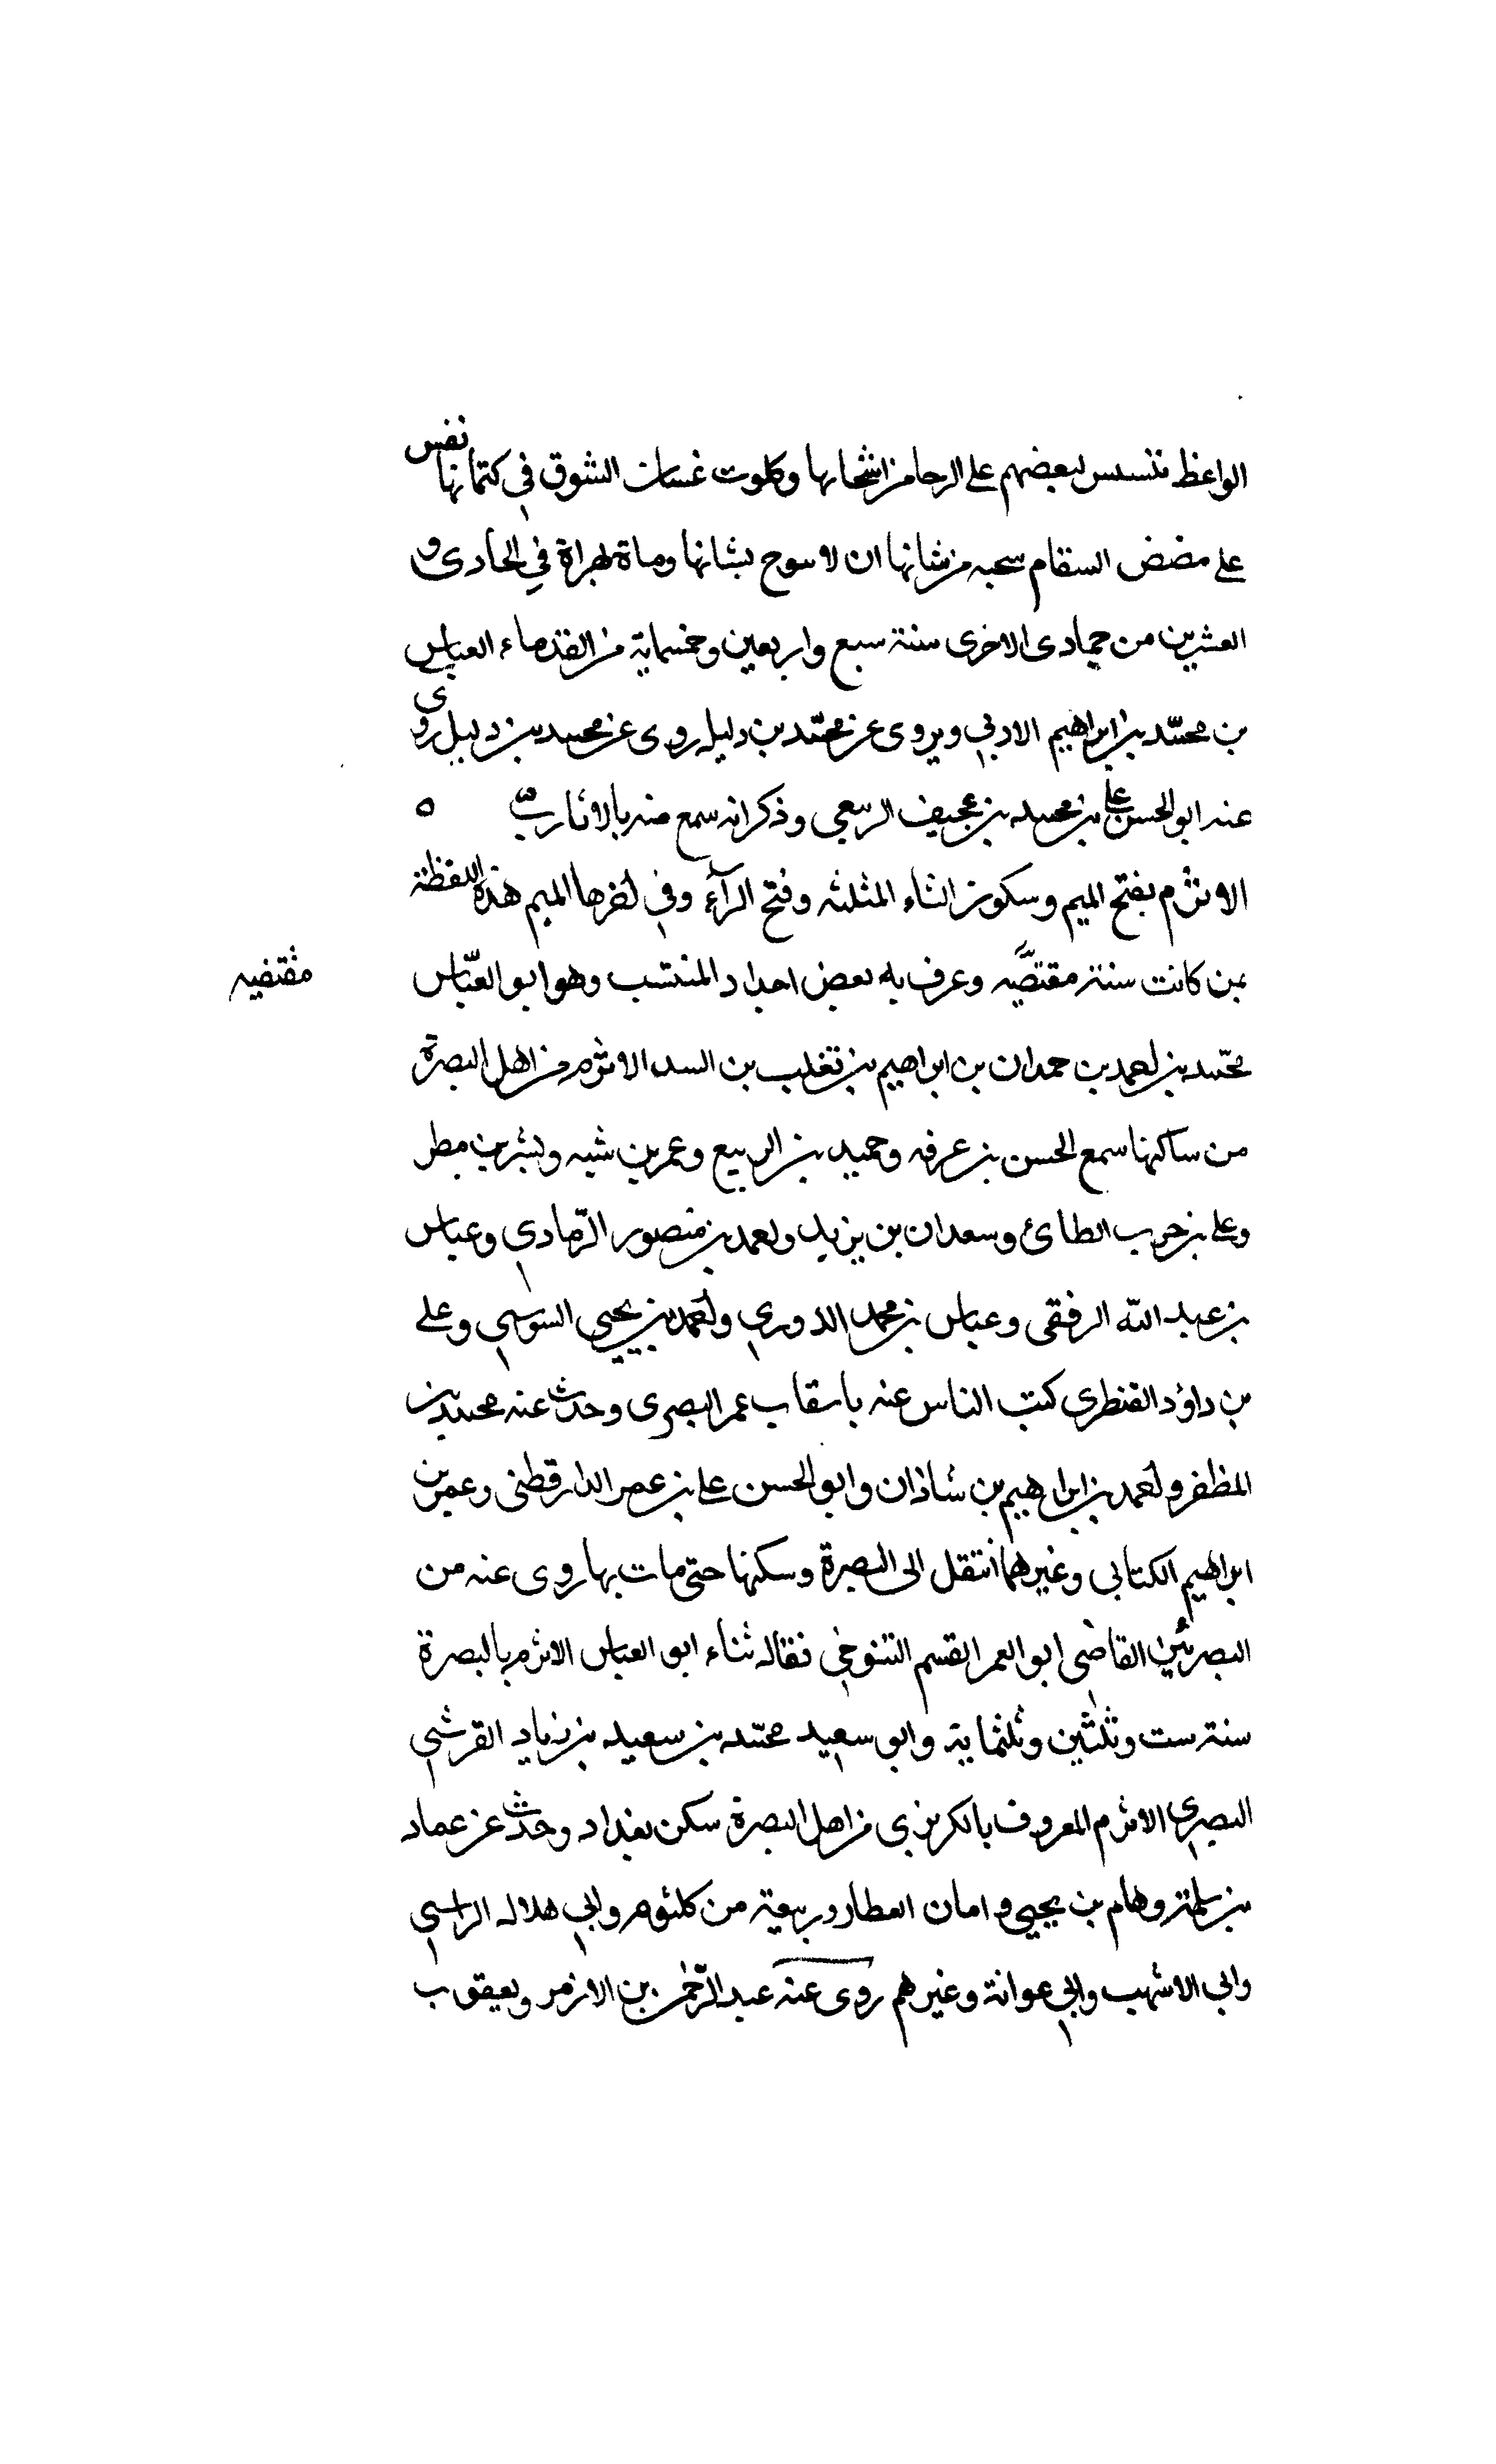 الواعظ لبعضهم على الرحا من اشحارها وكلوت غسان الشوق في كتمانها نفس
على مضض السقام سحبه من شانها ان لا سوح بشانها وماة بهراة في الحادى و
العشرين من جمادى الاخرى سنة سبع واربعين وخمسماية من القدماء العباس
بن محمد بن ابراهيم الادبي ويروى عن محمد بن دليله روى عن محمد بن دليل روى
عنه ابو الحسن على بن محمد بن عجيف الربيعى وذكر انه سمع منه بالاثارب ٥
الاثرم بفتح الميم وسكون الثاء المثلثه وفتح الرآء وفي اخرها الميم هذه اللفظة
بمن كانت سنه مقتضيه وعرف به بعض اجداد المنتسب وهو ابو العباس
مقتضيه
محمد بن احمد بن حمدان بن ابراهيم بن تغلب بن السد الاثرم من اهل البصرة
من ساكنها سمع الحسن بن عرفه وحميد بن الربيع وعمر بن شبه وبشر بن مطر
وعلى بن حرب الطائ وسعدان بن يزيد واحمد بن منصور الرمادي وعباس
بن عبد الله الرفقى وعباس بن محمد الدوري واحمد بن يحيى السوسي وعلى
بن داؤد القنطرى كتب الناس عنه عمر البصرى وحدث عنه محمد بن
المظفر واحمد بن ابراهيم بن شاذان وابو الحسن على بن عمر الدارقطنى وعمر بن
ابراهيم الكتابى وغيرهما انتقل الى البصرة وسكنها حتى مات بها روى عنه من
البصريين القاضى ابو العمر القسم التنوخي نقاله ثناء ابو العباس الاثرم بالبصرة
سنة ست وثلثين وثلثماية وابو سعيد محمد بن سعيد بن زياد القرشي
البصري الاثرم المعروف بالكريزى من اهل البصرة سكن بغداد وحدث عن عماد
بن سلمة وهام بن يحيى وامان العطار وربيعة من كلثوم وابي هلاله الراسبي
وابى الاشهب وابي عوانة وغيرهم روى عنه عبد الرحمن بن الازمر ويعيقوب